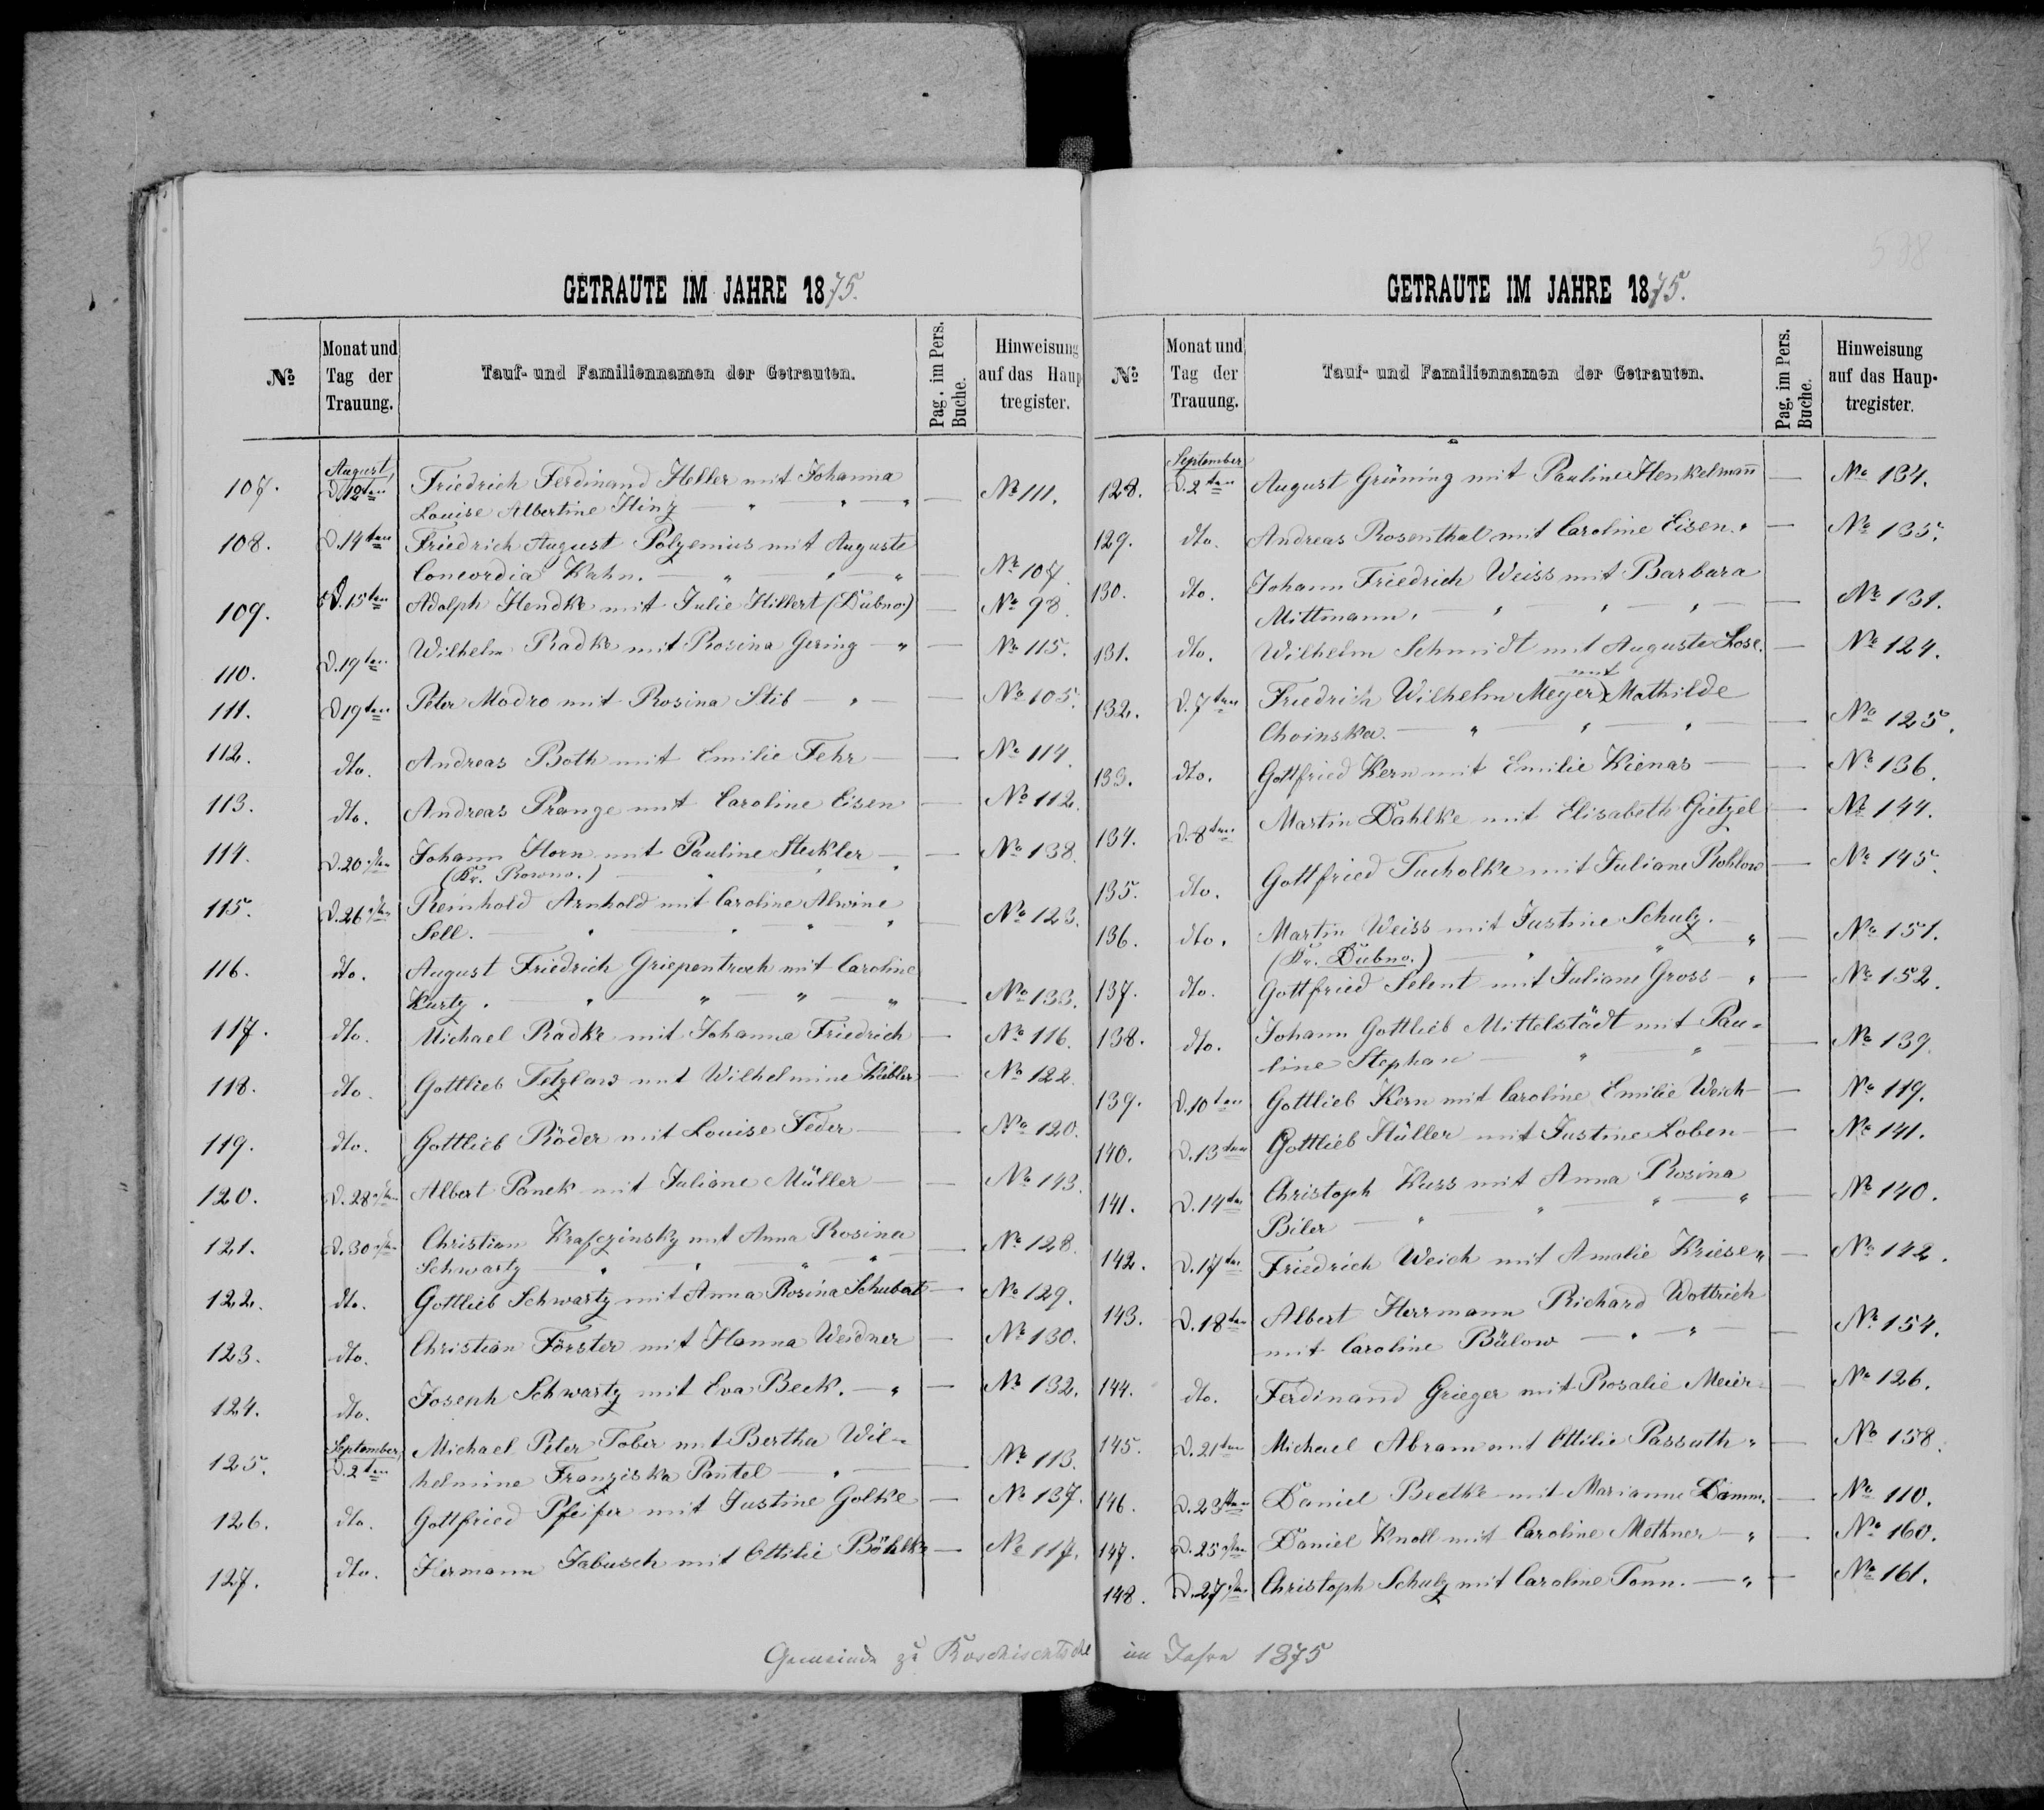 GETRAUTE IM JAHRE 1875.
№ Monat und Tag der Trauung. Tauf- und Familiennamen der Getrauten. Pag. im Pers. Buche. Hinweisung auf das Haup tregister.
107. August, d. 12ten Friedrich Ferdinand Heller mit Johanna
Louise Albertine Hinz — " " " — № 111.
108. d. 14ten Friedrich August Polzenius mit Auguste
Concordia Kahn. — " " " — № 107.
109. d. 15ten Adolph Hendke mit Julie Hillert (Dubno.) — № 98.
110. d. 19ten Wilhelm Radke mit Rosina Gering — " — № 115.
111. d 19ten Peter Modro mit Rosina Stib — " — № 105.
112. dto. Andreas Both mit Emilie Fehr — — № 114.
113. dto. Andreas Prange mit Caroline Eisen — № 112.
114. d. 20sten Johann Horn mit Pauline Steckler — — № 138.
(Kr. Rowno.) — " " "
115. d. 26sten Reinhold Arnhold mit Caroline Alwine
Sell. — " " " " — № 123.
116. dto. August Friedrich Griepentroch mit Caroline
Kurtz. " — " — " — " — № 133.
117. dto. Michael Radke mit Johanna Friedrich — № 116.
118. dto. Gottlieb Tetzlaw mit Wilhelmine Kübler — № 122.
119. dto. Gottlieb Röder mit Louise Feder — — № 120.
120. d. 28sten Albert Panek mit Juliane Müller — — № 143.
121. d. 30sten Christian Krafczinsky mit Anna Rosina
Schwartz — " " " " — № 128.
122. dto. Gottlieb Schwartz mit Anna Rosina Schubert — № 129.
123. dto. Christian Förster mit Hanna Weidner — № 130.
124. dto. Joseph Schwartz mit Eva Beck. — " — № 132.
125. September, d. 2ten Michael Peter Tober mit Bertha Wil-
helmine Franziska Pantel — " — — № 113.
126. dto. Gottfried Pfeifer mit Justine Golke — № 137.
127. dto. Hermann Jabusch mit Ottilie Böhlke — № 117.
GETRAUTE IM JAHRE 1875.
№ Monat und Tag der Trauung. Tauf- und Familiennamen der Getrauten. Pag. im Pers. Buche. Hinweisung auf das Haup- tregister.
128. September d. 2ten August Grüning mit Pauline Henkelmañ — № 134.
129. dto. Andreas Rosenthal mit Caroline Eisen. " — № 135.
130. dto. Johann Friedrich Weiss mit Barbara
Mittmann. — " — " — " — — № 131.
131. dto. Wilhelm Schmidt mit Auguste Lose. — № 124.
132. d. 7ten Friedrich Wilhelm Meyer mit Mathilde
Choinska. — " — " — " — — № 125.
133. dto. Gottfried Kern mit Emilie Kienas — — № 136.
134. d. 8ten Martin Dahlke mit Elisabeth Gietzel — № 144.
135. dto. Gottfried Tucholke mit Juliane Rohlow — № 145.
136. dto. Martin Weiss mit Justine Schulz. — " — № 151.
(Kr. Dubno.) — " "
137. dto. Gottfried Selent mit Juliane Gross — " — № 152.
138. dto. Johann Gottlieb Mittelstädt mit Pau-
line Stephan — " — " — — № 139.
139. d. 10ten Gottlieb Kern mit Caroline Emilie Weich — № 119.
140. d. 13ten Gottlieb Hüller mit Justine Loben — — № 141.
141. d. 14ten Christoph Kuss mit Anna Rosina
Biler — " " " — " — № 140.
142. d. 17ten Friedrich Weich mit Amalie Kriese " — № 142.
143. d. 18ten Albert Herrmann Richard Wottrich
mit Caroline Bülow — " — " — — № 154.
144. dto. Ferdinand Grieger mit Rosalie Meier — № 126.
145. d. 21ten Michael Abram mit Ottilie Passuth " — № 158.
146. d. 23sten Daniel Bedtke mit Marianne Damm. — № 110.
147. d. 25sten Daniel Knoll mit Caroline Methner — " — № 160.
148. d. 27sten Christoph Schulz mit Caroline Tonn. — " — № 161.
Gemeinde zu Roschischtsche im Jahre 1875